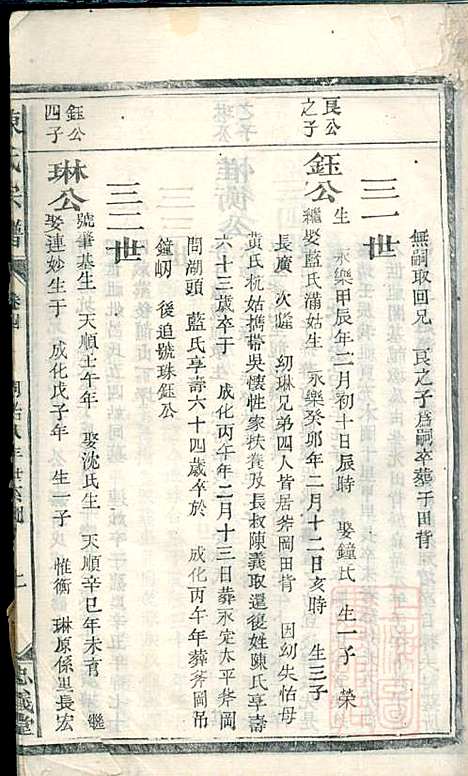 無嗣取回兄一良之子為嗣卒葬于田背
三一世
良公之子
鈺公
生 永樂甲辰年二月初十日辰時 娶鐘氏 生一子 榮
繼娶藍氏滿姑生 永樂癸卯年二月十二日亥時 生三子
長廣 次隆 幼琳兄弟四人皆居斧岡田背 因幼失怙母
黃氏杭姑攜帶吳懷性家扶養及長叔陳義取還復姓陳氏享壽
六十三歲卒于 成化丙午年二月十三日葬永定太平斧岡
問湖頭 藍氏享壽六十四歲卒於 成化丙午年葬斧岡吊
鐘㘭 後追號珠鈺公
三二世
鈺公四子
琳公
號肇基生 天順壬午年 娶沈氏生 天順辛巳年未育 繼
娶連妙生于 成化戊子年 生一子 惟衡 琳原係思長宏
陳氏宗譜
卷
忠義堂